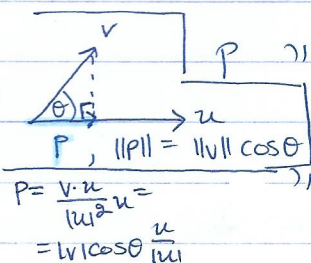 v
P
θ
u
P , ||P|| = ||v|| cosθ
P = v·u/|u|² u =
= |v|cosθ u/|u|